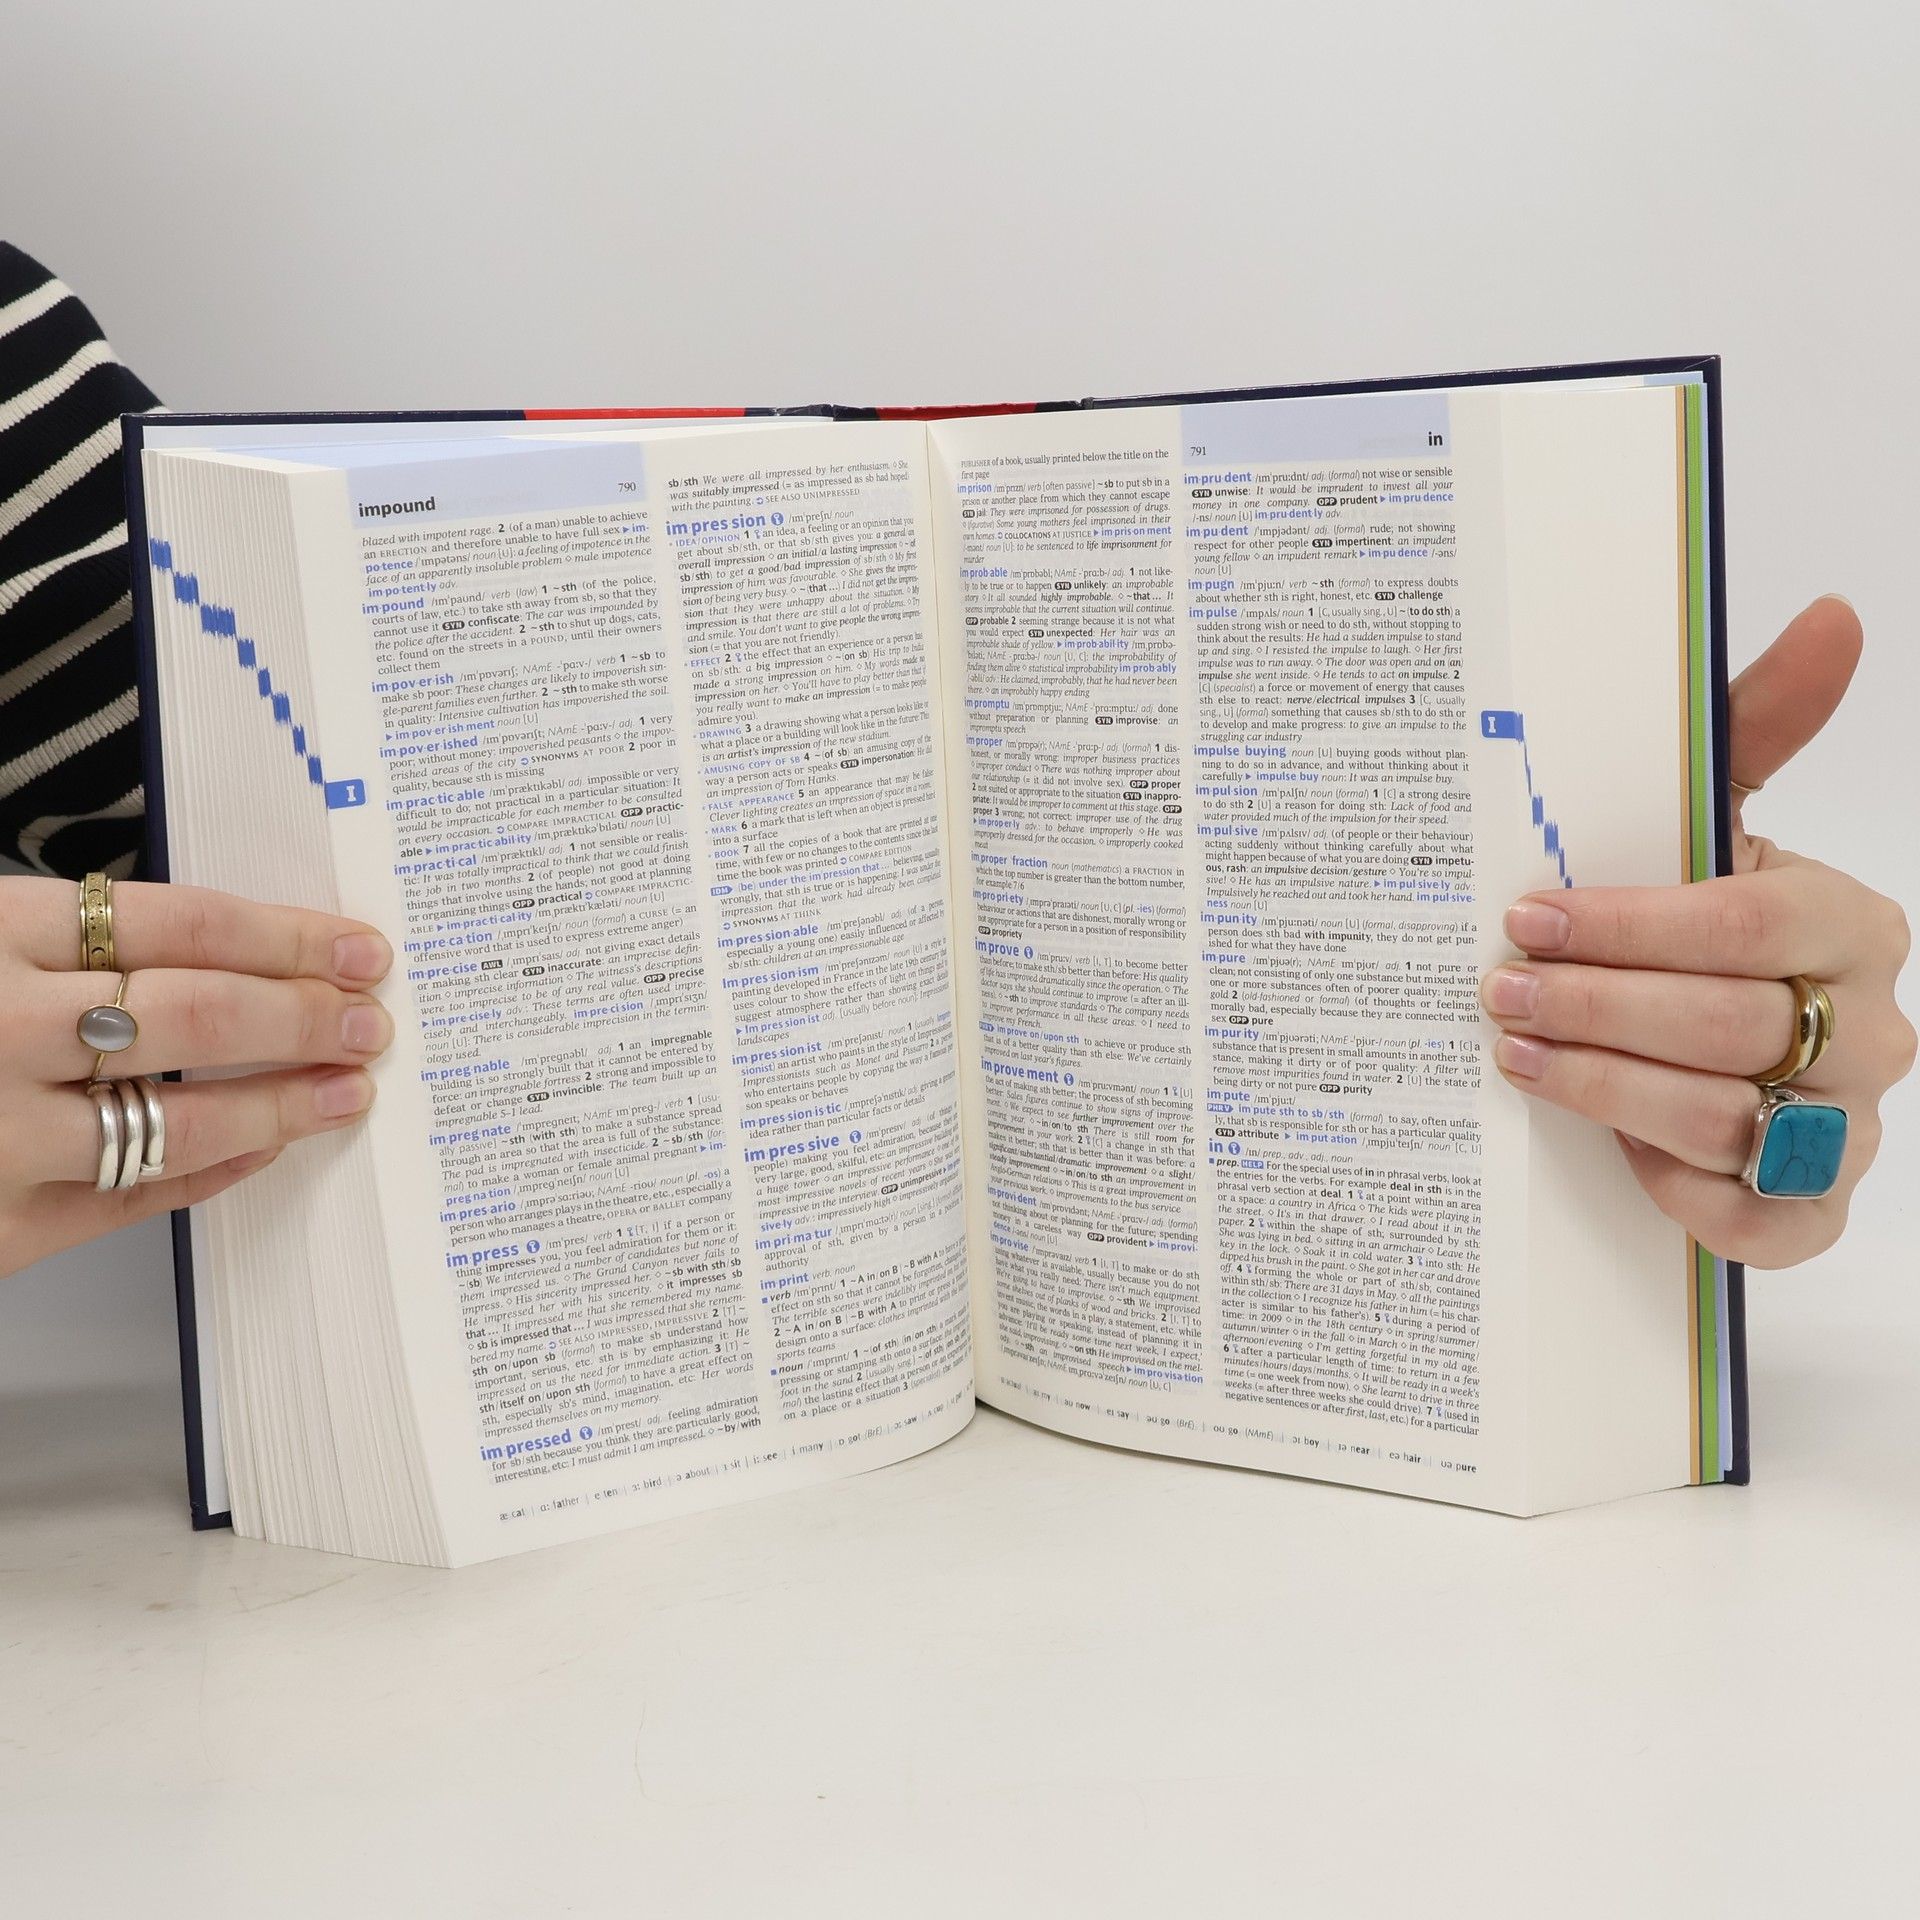 impound
790
blazed with impotent rage. 2 (of a man) unable to achieve
an ERECTION and therefore unable to have full sex ▶ im·
po·tence /ˈɪmpətəns/ noun [U]: a feeling of impotence in the
face of an apparently insoluble problem ◇ male impotence
im·po·tent·ly adv.
im·pound /ɪmˈpaʊnd/ verb (law) 1 ~sth (of the police,
courts of law, etc.) to take sth away from sb, so that they
cannot use it SYN confiscate: The car was impounded by
the police after the accident. 2 ~sth to shut up dogs, cats,
etc. found on the streets in a POUND, until their owners
collect them
im·pov·er·ish /ɪmˈpɒvərɪʃ; NAmE -ˈpɑːv-/ verb 1 ~sb to
make sb poor: These changes are likely to impoverish sin-
gle-parent families even further. 2 ~sth to make sth worse
in quality: Intensive cultivation has impoverished the soil.
▶ im·pov·er·ish·ment noun [U]
im·pov·er·ished /ɪmˈpɒvərɪʃt; NAmE -ˈpɑːv-/ adj. 1 very
poor; without money: impoverished peasants ◇ the impov-
erished areas of the city ➲ SYNONYMS AT POOR 2 poor in
quality, because sth is missing
im·prac·tic·able /ɪmˈpræktɪkəbl/ adj. impossible or very
difficult to do; not practical in a particular situation: It
would be impracticable for each member to be consulted
on every occasion. ➲ COMPARE IMPRACTICAL OPP practic-
able ▶ im·prac·tic·abil·ity /ɪmˌpræktɪkəˈbɪləti/ noun [U]
im·prac·tical /ɪmˈpræktɪkl/ adj. 1 not sensible or realis-
tic: It was totally impractical to think that we could finish
the job in two months. 2 (of people) not good at doing
things that involve using the hands; not good at planning
or organizing things OPP practical ➲ COMPARE IMPRACTIC-
ABLE ▶ im·prac·ti·cal·ity /ɪmˌpræktɪˈkæləti/ noun [U]
im·pre·ca·tion /ˌɪmprɪˈkeɪʃn/ noun (formal) a CURSE (= an
offensive word that is used to express extreme anger)
im·pre·cise AWL /ˌɪmprɪˈsaɪs/ adj. not giving exact details
or making sth clear SYN inaccurate: an imprecise defin-
ition ◇ imprecise information ◇ The witness's descriptions
were too imprecise to be of any real value. OPP precise
▶ im·pre·cise·ly adv.: These terms are often used impre-
cisely and interchangeably. im·pre·ci·sion /ˌɪmprɪˈsɪʒn/
noun [U]: There is considerable imprecision in the termin-
ology used.
im·preg·nable /ɪmˈpregnəbl/ adj. 1 an impregnable
building is so strongly built that it cannot be entered by
force: an impregnable fortress 2 strong and impossible to
defeat or change SYN invincible: The team built up an
impregnable 5–1 lead.
im·preg·nate /ˈɪmpregneɪt; NAmE ɪmˈpreg-/ verb 1 [usu-
ally passive] ~sth (with sth) to make a substance spread
through an area so that the area is full of the substance:
The pad is impregnated with insecticide. 2 ~sb/sth (for-
mal) to make a woman or female animal pregnant ▶ im-
preg·na·tion /ˌɪmpregˈneɪʃn/ noun [U]
im·pres·ario /ˌɪmprəˈsɑːriəʊ; NAmE -rioʊ/ noun (pl. -os) a
person who arranges plays in the theatre, etc., especially a
person who manages a theatre, OPERA or BALLET company
im·press /ɪmˈpres/ verb 1 [T, I] if a person or
thing impresses you, you feel admiration for them or it:
~(sb) We interviewed a number of candidates but none of
them impressed us. ◇ The Grand Canyon never fails to
impress. ◇ His sincerity impressed her. ◇ ~sb with sth/sb
He impressed her with his sincerity. ◇ it impresses sb
that ... It impressed me that she remembered my name.
◇ sb is impressed that ... I was impressed that she remem-
bered my name. ➲ SEE ALSO IMPRESSED, IMPRESSIVE 2 [T] ~
sth on/upon sb (formal) to make sb understand how
important, serious, etc. sth is by emphasizing it: He
impressed on us the need for immediate action. 3 [T] ~
sth/itself on/upon sth (formal) to have a great effect on
sth, especially sb's mind, imagination, etc: Her words
impressed themselves on my memory.
im·pressed /ɪmˈprest/ adj. feeling admiration
for sb/sth because you think they are particularly good,
interesting, etc: I must admit I am impressed. ◇ ~by/with
sb/sth We were all impressed by her enthusiasm. ◇ She
was suitably impressed (= as impressed as sb had hoped)
with the painting. ➲ SEE ALSO UNIMPRESSED
im·pres·sion /ɪmˈpreʃn/ noun
• IDEA/OPINION 1 an idea, a feeling or an opinion that you
get about sb/sth, or that sb/sth gives you: a general/an
overall impression ◇ an initial/a lasting impression ◇ ~of
sb/sth) to get a good/bad impression of sb/sth ◇ My first
impression of him was favourable. ◇ She gives the impres-
sion of being very busy. ◇ ~(that ...) I did not get the impres-
sion that they were unhappy about the situation. ◇ My
impression is that there are still a lot of problems. ◇ Try
and smile. You don't want to give people the wrong impres-
sion (= that you are not friendly).
• EFFECT 2 the effect that an experience or a person has
on sb/sth: a big impression ◇ ~(on sb) His trip to India
made a strong impression on him. ◇ My words made no
impression on her. ◇ You'll have to play better than that if
you really want to make an impression (= to make people
admire you).
• DRAWING 3 a drawing showing what a person looks like or
what a place or a building will look like in the future: This
is an artist's impression of the new stadium.
• AMUSING COPY OF SB 4 ~(of sb) an amusing copy of the
way a person acts or speaks SYN impersonation: He did
an impression of Tom Hanks.
• FALSE APPEARANCE 5 an appearance that may be false:
Clever lighting creates an impression of space in a room.
• MARK 6 a mark that is left when an object is pressed hard
into a surface
• BOOK 7 all the copies of a book that are printed at one
time, with few or no changes to the contents since the last
time the book was printed ➲ COMPARE EDITION
IDM (be) under the im·pression that ... believing, usually
wrongly, that sth is true or is happening: I was under the
impression that the work had already been completed.
➲ SYNONYMS AT THINK
im·pres·sion·able /ɪmˈpreʃənəbl/ adj. (of a person,
especially a young one) easily influenced or affected by
sb/sth: children at an impressionable age
Im·pres·sion·ism /ɪmˈpreʃənɪzəm/ noun [U] a style in
painting developed in France in the late 19th century that
uses colour to show the effects of light on things and to
suggest atmosphere rather than showing exact details
▶ Im·pres·sion·ist adj. [usually before noun]: Impressionist
landscapes
im·pres·sion·ist /ɪmˈpreʃənɪst/ noun 1 (usually Impres-
sionist) an artist who paints in the style of Impressionism:
Impressionists such as Monet and Pissarro 2 a person
who entertains people by copying the way a famous per-
son speaks or behaves
im·pres·sion·is·tic /ɪmˌpreʃəˈnɪstɪk/ adj. giving a general
idea rather than particular facts or details
im·pres·sive /ɪmˈpresɪv/ adj. (of things or
people) making you feel admiration, because they are
very large, good, skilful, etc: an impressive building with
a huge tower ◇ an impressive performance
most impressive novels of recent years ◇ She was
impressive in the interview. OPP unimpressive ▶ im·pres-
sive·ly adv.: impressively high ◇ impressively organized
im·pri·ma·tur
approval of sth, given by a person in a position
authority
im·print verb, noun
■ verb /ɪmˈprɪnt/ 1 ~A in/on B | ~B with A to have a great
effect on sth so that it cannot be forgotten
The terrible scenes were indelibly imprinted on
2 ~A in/on B | ~B with A to print or press a mark or
design onto a surface: clothes imprinted with the logos of
sports teams
■ noun /ˈɪmprɪnt/ 1 ~(of sth) (in/on sth) a mark made by
pressing or stamping sth onto a surface
foot in the sand 2 [usually sing.]
mal) the lasting effect that a person or an experience
on a place or a situation 3
æ cat | ɑː father | e ten | ɜː bird | ə about | ɪ sit | iː see | i many | ɒ got (BrE) | ɔː saw
in
791
PUBLISHER of a book, usually printed below the title on the
first page
im·prison /ɪmˈprɪzn/ verb [often passive] ~sb to put sb in a
prison or another place from which they cannot escape
SYN jail: They were imprisoned for possession of drugs.
◇ (figurative) Some young mothers feel imprisoned in their
own homes. ➲ COLLOCATIONS AT JUSTICE ▶ im·pris·on·ment
/-mənt/ noun [U]: to be sentenced to life imprisonment for
murder
im·prob·able /ɪmˈprɒbəbl; NAmE -ˈprɑːb-/ adj. 1 not like-
ly to be true or to happen SYN unlikely: an improbable
story ◇ It all sounded highly improbable. ◇ ~that ... It
seems improbable that the current situation will continue.
OPP probable 2 seeming strange because it is not what
you would expect SYN unexpected: Her hair was an
improbable shade of yellow. ▶ im·prob·abil·ity /ɪmˌprɒbə-
ˈbɪləti; NAmE -ˌprɑːbə-/ noun [U, C]: the improbability of
finding them alive ◇ statistical improbability im·prob·ably
/-əbli/ adv.: He claimed, improbably, that he had never been
there. ◇ an improbably happy ending
im·promptu /ɪmˈprɒmptjuː; NAmE -ˈprɑːmptuː/ adj. done
without preparation or planning SYN improvise: an
impromptu speech
im·proper /ɪmˈprɒpə(r); NAmE -ˈprɑːp-/ adj. (formal) 1 dis-
honest, or morally wrong: improper business practices
◇ improper conduct ◇ There was nothing improper about
our relationship (= it did not involve sex). OPP proper
2 not suited or appropriate to the situation SYN inappro-
priate: It would be improper to comment at this stage. OPP
proper 3 wrong; not correct: improper use of the drug
▶ im·prop·er·ly adv.: to behave improperly ◇ He was
improperly dressed for the occasion. ◇ improperly cooked
meat
im·proper ˈfraction noun (mathematics) a FRACTION in
which the top number is greater than the bottom number,
for example 7/6
im·pro·pri·ety /ˌɪmprəˈpraɪəti/ noun [U, C] (pl. -ies) (formal)
behaviour or actions that are dishonest, morally wrong or
not appropriate for a person in a position of responsibility
OPP propriety
im·prove /ɪmˈpruːv/ verb [I, T] to become better
than before; to make sth/sb better than before: His quality
of life has improved dramatically since the operation. ◇ The
doctor says she should continue to improve (= after an ill-
ness). ◇ ~sth to improve standards ◇ The company needs
to improve performance in all these areas. ◇ I need to
improve my French.
PHRV im·prove on/upon sth to achieve or produce sth
that is of a better quality than sth else: We've certainly
improved on last year's figures.
im·prove·ment /ɪmˈpruːvmənt/ noun 1 [U]
the act of making sth better; the process of sth becoming
better: Sales figures continue to show signs of improve-
ment. ◇ We expect to see further improvement over the
coming year. ◇ ~in/on/to sth There is still room for
improvement in your work. 2 [C] a change in sth that
makes it better; sth that is better than it was before: a
significant/substantial/dramatic improvement ◇ a slight/
steady improvement ◇ ~in/on/to sth an improvement in
Anglo-German relations ◇ This is a great improvement on
your previous work. ◇ improvements to the bus service
im·provi·dent /ɪmˈprɒvɪdənt; NAmE -ˈprɑːv-/ adj. (formal)
not thinking about or planning for the future; spending
money in a careless way OPP provident ▶ im·provi-
dence /-əns/ noun [U]
im·pro·vise /ˈɪmprəvaɪz/ verb 1 [I, T] to make or do sth
using whatever is available, usually because you do not
have what you really need: There isn't much equipment.
We're going to have to improvise. ◇ ~sth We improvised
some shelves out of planks of wood and bricks. 2 [I, T] to
invent music, the words in a play, a statement, etc. while
you are playing or speaking, instead of planning it in
advance: 'I'll be ready some time next week, I expect,'
she said, improvising. ◇ ~on sth He improvised on the mel-
ody. ◇ ~sth an improvised speech ▶ im·pro·visa·tion
noun [U, C]
im·pru·dent /ɪmˈpruːdnt/ adj. (formal) not wise or sensible
SYN unwise: It would be imprudent to invest all your
money in one company. OPP prudent ▶ im·pru·dence
/-ns/ noun [U] im·pru·dent·ly adv.
im·pu·dent /ˈɪmpjədənt/ adj. (formal) rude; not showing
respect for other people SYN impertinent: an impudent
young fellow ◇ an impudent remark ▶ im·pu·dence /-əns/
noun [U]
im·pugn /ɪmˈpjuːn/ verb ~sth (formal) to express doubts
about whether sth is right, honest, etc. SYN challenge
im·pulse /ˈɪmpʌls/ noun 1 [C, usually sing., U] ~(to do sth) a
sudden strong wish or need to do sth, without stopping to
think about the results: He had a sudden impulse to stand
up and sing. ◇ I resisted the impulse to laugh. ◇ Her first
impulse was to run away. ◇ The door was open and on (an)
impulse she went inside. ◇ He tends to act on impulse. 2
[C] (specialist) a force or movement of energy that causes
sth else to react: nerve/electrical impulses 3 [C, usually
sing., U] (formal) something that causes sb/sth to do sth or
to develop and make progress: to give an impulse to the
struggling car industry
impulse buying noun [U] buying goods without plan-
ning to do so in advance, and without thinking about it
carefully ▶ impulse buy noun: It was an impulse buy.
im·pul·sion /ɪmˈpʌlʃn/ noun (formal) 1 [C] a strong desire
to do sth 2 [U] a reason for doing sth: Lack of food and
water provided much of the impulsion for their speed.
im·pul·sive /ɪmˈpʌlsɪv/ adj. (of people or their behaviour)
acting suddenly without thinking carefully about what
might happen because of what you are doing SYN impetu-
ous, rash: an impulsive decision/gesture ◇ You're so impul-
sive! ◇ He has an impulsive nature. ▶ im·pul·sive·ly adv.:
Impulsively he reached out and took her hand. im·pul·sive-
ness noun [U]
im·pun·ity /ɪmˈpjuːnəti/ noun [U] (formal, disapproving) if a
person does sth bad with impunity, they do not get pun-
ished for what they have done
im·pure /ɪmˈpjʊə(r); NAmE ɪmˈpjʊr/ adj. 1 not pure or
clean; not consisting of only one substance but mixed with
one or more substances often of poorer quality: impure
gold 2 (old-fashioned or formal) (of thoughts or feelings)
morally bad, especially because they are connected with
sex OPP pure
im·pur·ity /ɪmˈpjʊərəti; NAmE -ˈpjʊr-/ noun (pl. -ies) 1 [C] a
substance that is present in small amounts in another sub-
stance, making it dirty or of poor quality: A filter will
remove most impurities found in water. 2 [U] the state of
being dirty or not pure OPP purity
im·pute /ɪmˈpjuːt/
PHRV im·pute sth to sb/sth (formal) to say, often unfair-
ly, that sb is responsible for sth or has a particular quality
SYN attribute ▶ im·put·ation /ˌɪmpjuˈteɪʃn/ noun [C, U]
in /ɪn/ prep., adv., adj., noun
■ prep. HELP For the special uses of in in phrasal verbs, look at
the entries for the verbs. For example deal in sth is in the
phrasal verb section at deal. 1 at a point within an area
or a space: a country in Africa ◇ The kids were playing in
the street. ◇ It's in that drawer. ◇ I read about it in the
paper. 2 within the shape of sth; surrounded by sth:
She was lying in bed. ◇ sitting in an armchair ◇ Leave the
key in the lock. ◇ Soak it in cold water. 3 into sth: He
dipped his brush in the paint. ◇ She got in her car and drove
off. 4 forming the whole or part of sth/sb; contained
within sth/sb: There are 31 days in May. ◇ all the paintings
in the collection ◇ I recognize his father in him (= his char-
acter is similar to his father's). 5 during a period of
time: in 2009 ◇ in the 18th century ◇ in spring/summer/
autumn/winter ◇ in the fall ◇ in March ◇ in the morning/
afternoon/evening ◇ I'm getting forgetful in my old age.
6 after a particular length of time: to return in a few
minutes/hours/days/months. ◇ It will be ready in a week's
time (= one week from now). ◇ She learnt to drive in three
weeks (= after three weeks she could drive). 7 (used in
negative sentences or after first, last, etc.) for a particular
aʊ now | eɪ say | əʊ go (BrE) | oʊ go (NAmE) | ɔɪ boy | ɪə near | eə hair | ʊə pure
I
I